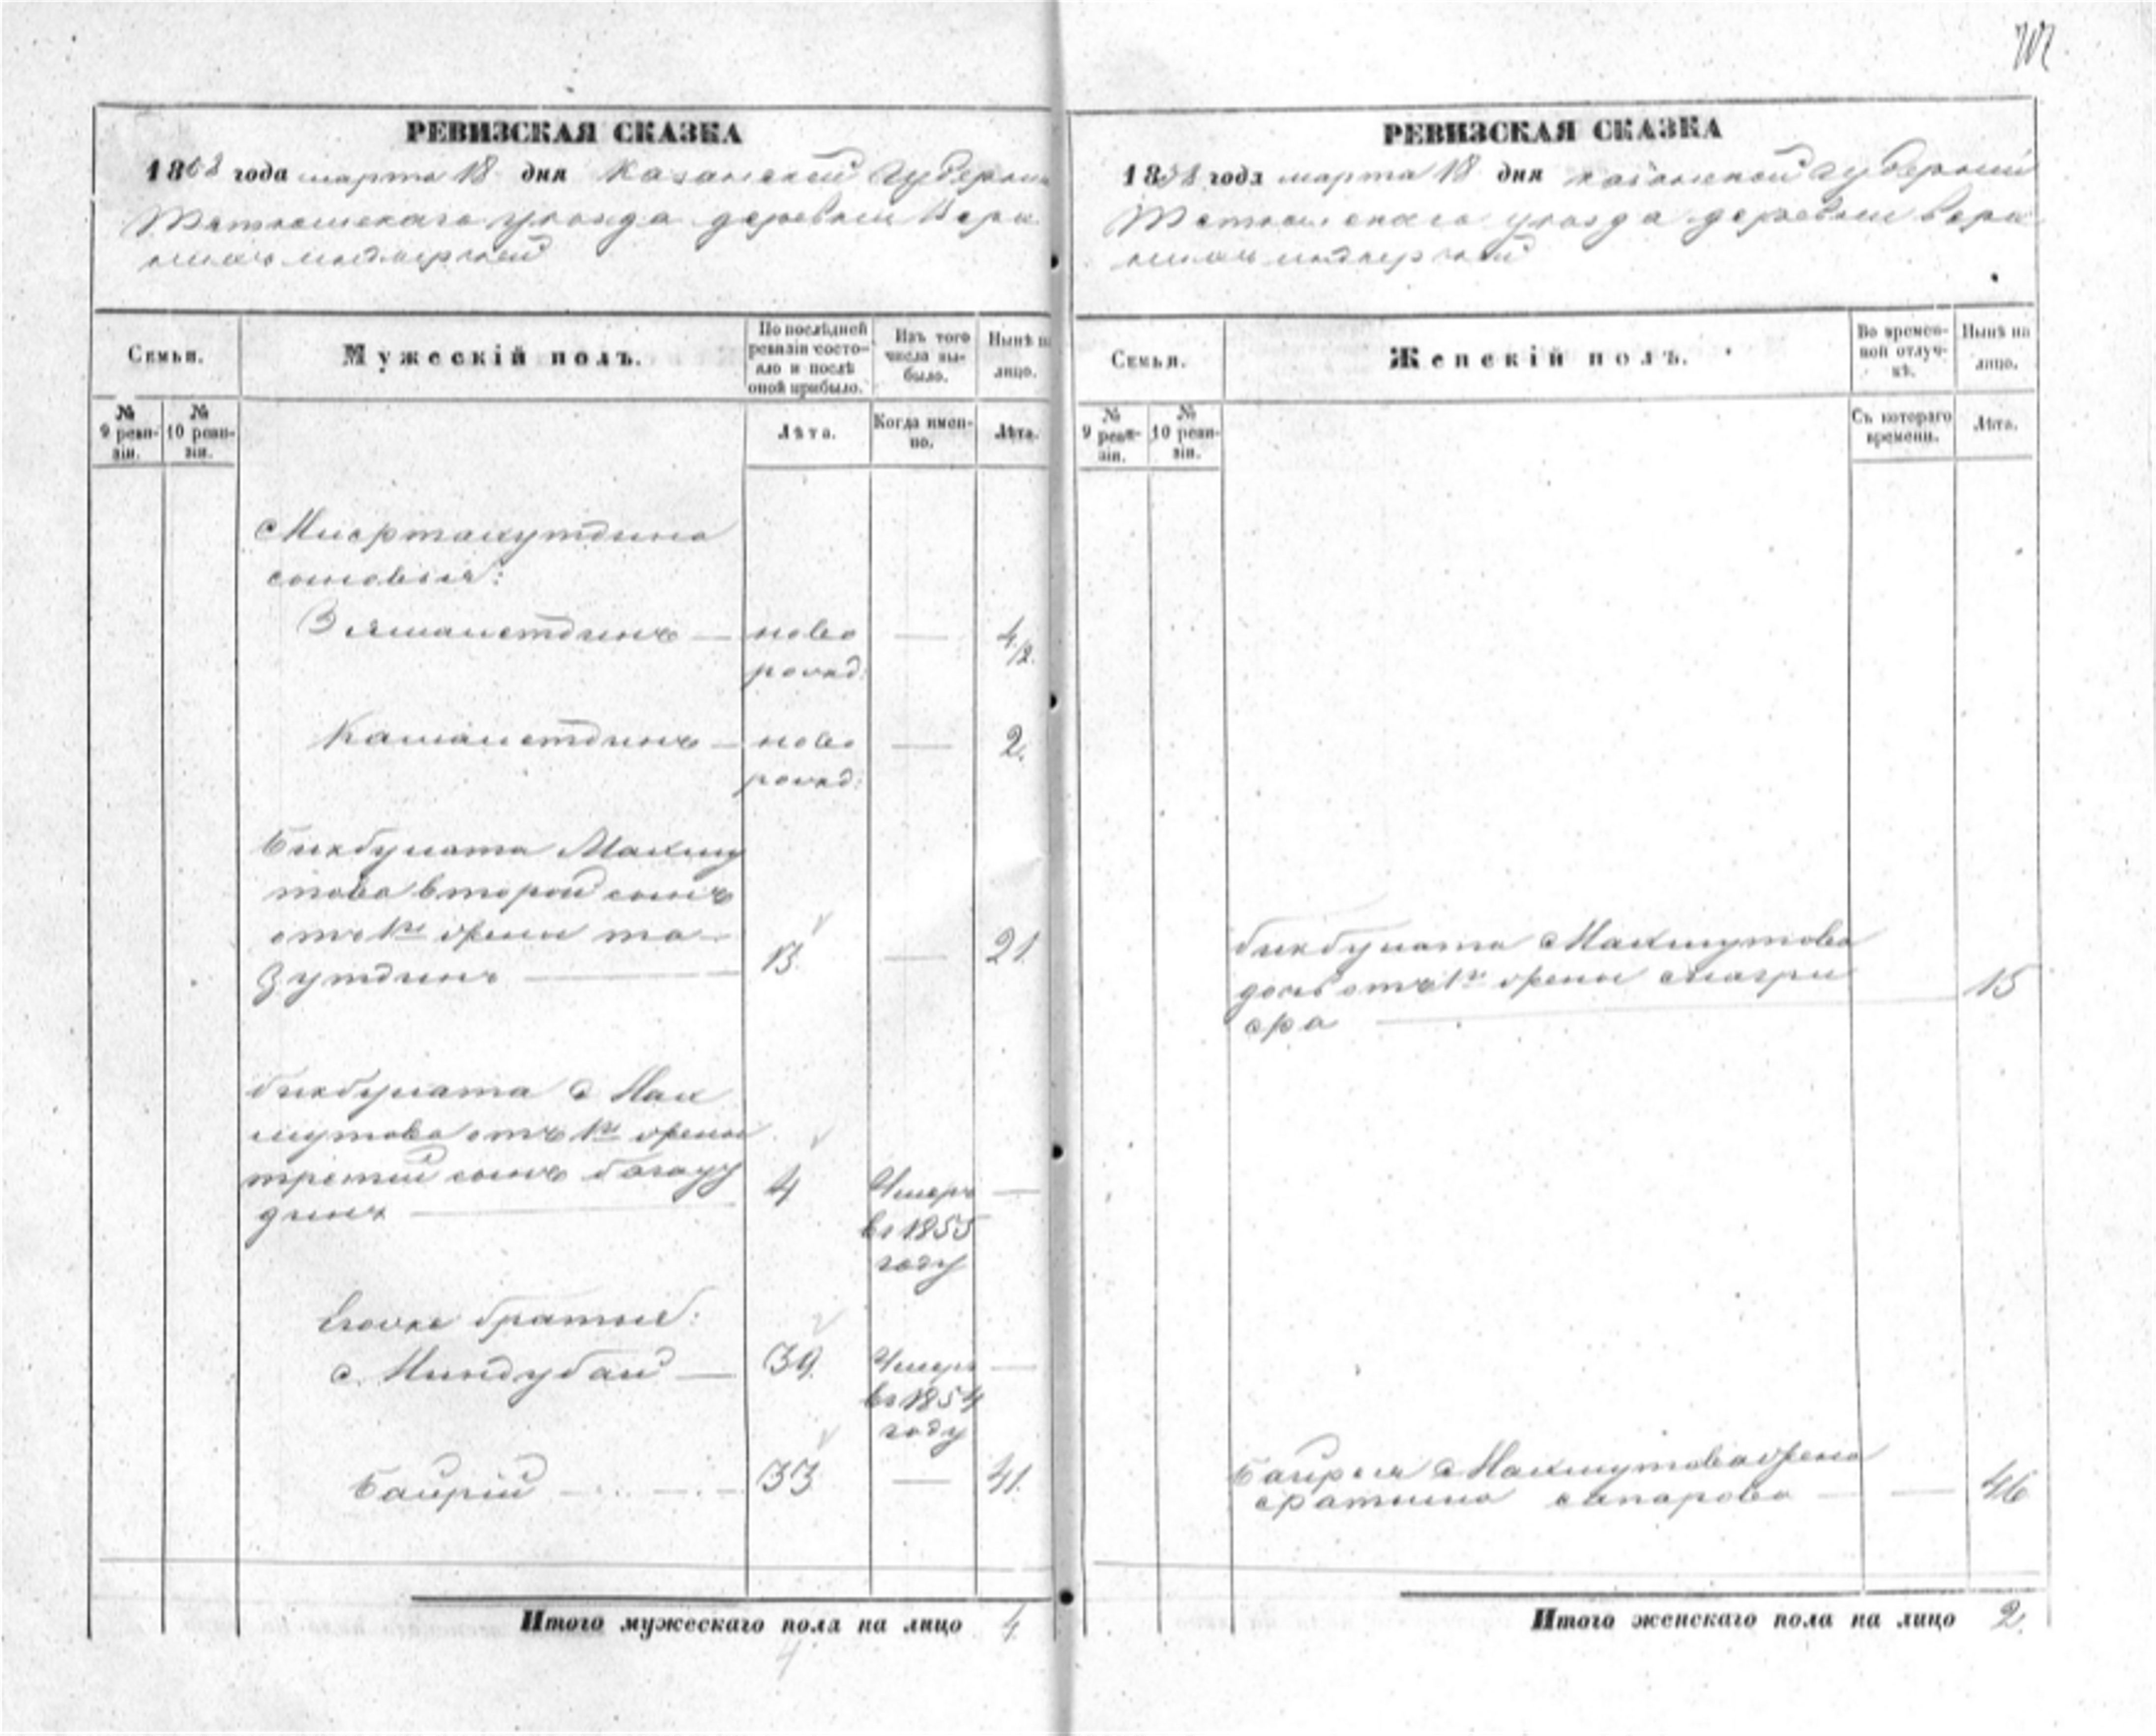 РЕВИЗСКАЯ СКАЗКА
1858 года марта 18 дня Казанской Губернии
Тетюшскаго уезда деревни
Семьи.
Мужескій полъ.
По послѣдней ревизіи состояло и послѣ оной прибыло.
Изъ того числа выбыло.
Нынѣ на лицо.
№ 9 ревизіи.
№ 10 ревизіи.
Лѣта.
Когда именно.
Лѣта.
сыновья:
новорожд:
4/2.
Камалетдинъ — новорожд: — 2.
Бикбулата Макшу
това второй сынъ
отъ 1й жены та
зутдинъ — 13. — 21.
бикбулата Мак
шутова отъ 1й жены
третій сынъ багауд
динъ — 4 Умеръ —
въ 1855
году
Егоже братья:
Миндубай — 39. Умеръ —
въ 1854
году
Баирій — 33 — 41.
Итого мужескаго пола на лицо 4.
РЕВИЗСКАЯ СКАЗКА
1858 года марта 18 дня Казанской Губерніи
Тетюшскаго уезда деревни
Семьи.
Женскій полъ.
Во временной отлучкѣ.
Нынѣ на лицо.
№ 9 ревизіи.
№ 10 ревизіи.
Съ котораго времени.
Лѣта.
бикбулата Макшутова
дочь отъ 1й жены
15
Баирія Макшутова жена
сапарова — — 46
Итого женскаго пола на лицо 2.